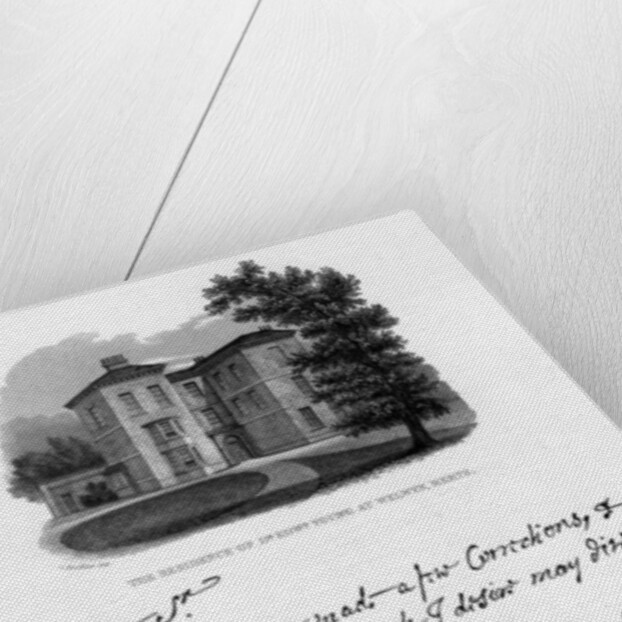 THE RESIDENCE OF Dr. EDWD. YOUNG AT WELWYN HERTS.
Sr.
made a few Corrections, &
I desire may